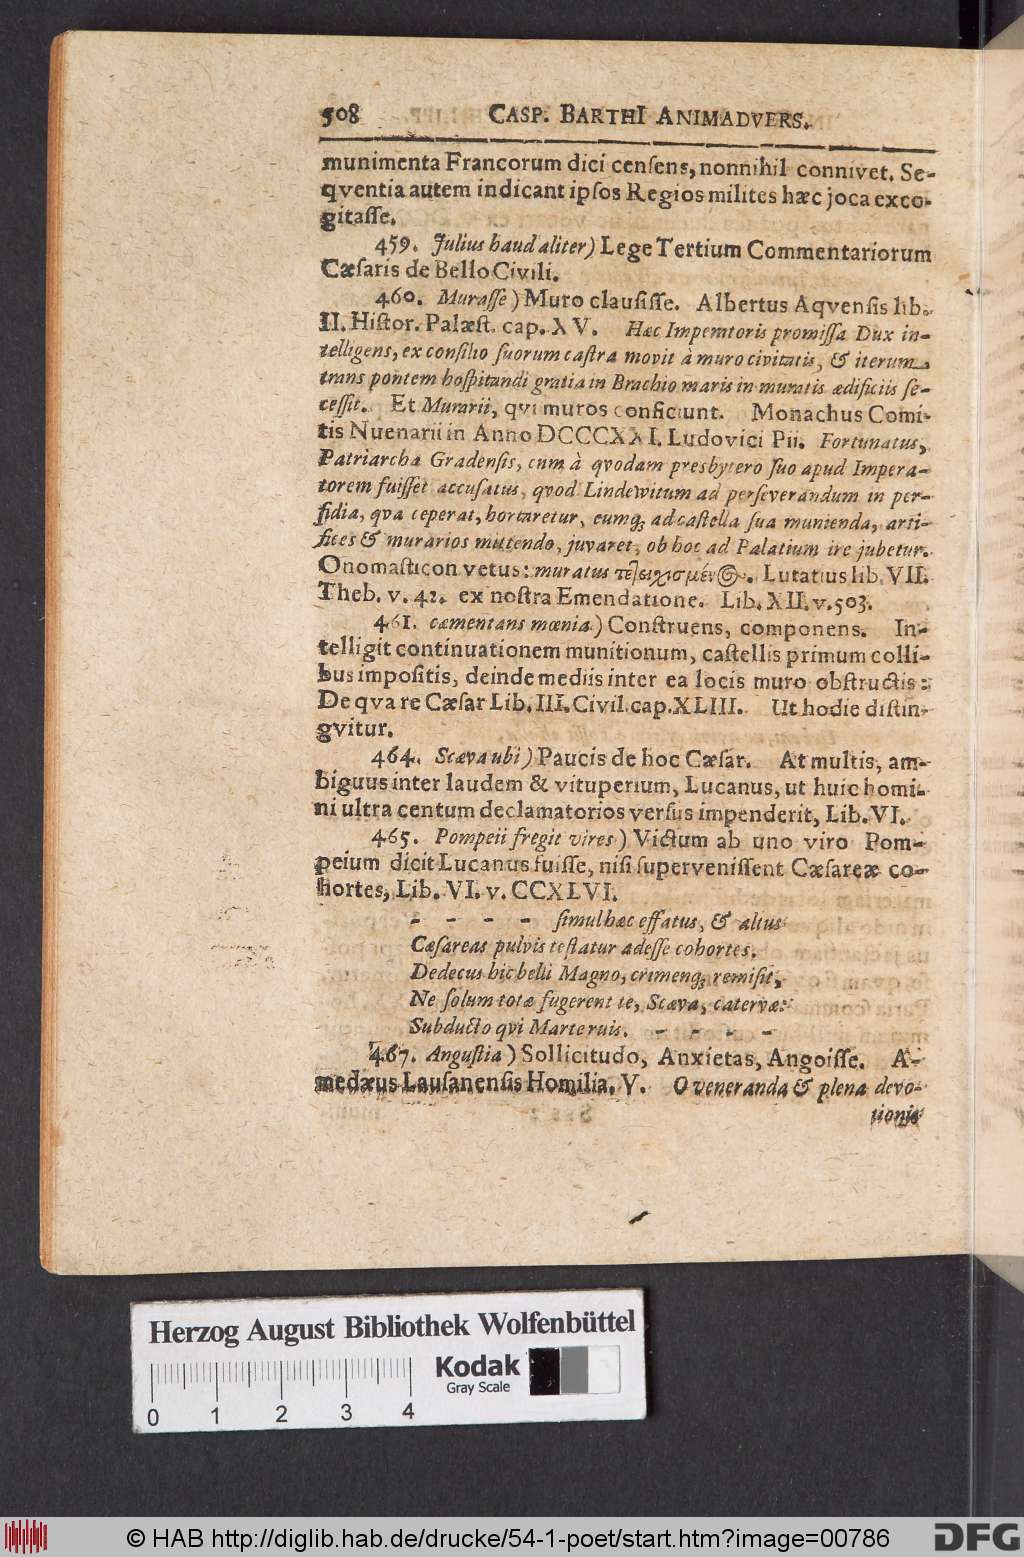 508 CASP. BARTHI ANIMADVERS.
munimenta Francorum dici censens, nonnihil connivet. Se-
qventia autem indicant ipsos Regios milites hæc joca exco-
gitasse.
459. Julius haud aliter) Lege Tertium Commentariorum
Cæsaris de Bello Civili.
460. Murasse) Muro clausisse. Albertus Aqvensis lib.
II. Histor. Palæst. cap. XV. Hæc Imperatoris promissa Dux in-
telligens, ex consilio suorum castra movit à muro civitatis, & iterum
trans pontem hospitandi gratia in Brachio maris in muratis ædificiis se-
cessit. Et Murarii, qvi muros conficiunt. Monachus Comi-
tis Nuenarii in Anno DCCCXXI. Ludovici Pii. Fortunatus,
Patriarcha Gradensis, cum à qvodam presbytero suo apud Impera-
torem fuisset accusatus, qvod Lindewitum ad perseverandum in per-
fidia, qva ceperat, hortaretur, eumq; ad castella sua munienda, arti-
fices & murarios mittendo, juvaret, ob hoc ad Palatium ire jubetur.
Onomasticon vetus: muratus τετειχισμένος. Lutatius lib. VII.
Theb. v. 42. ex nostra Emendatione. Lib. XII. v. 503.
461. cæmentans mœnia) Construens, componens. In-
telligit continuationem munitionum, castellis primum colli-
bus impositis, deinde mediis inter ea locis muro obstructis:
De qva re Cæsar Lib. III. Civil. cap. XLIII. Ut hodie distin-
gvitur.
464. Scæva ubi) Paucis de hoc Cæsar. At multis, am-
biguus inter laudem & vituperium, Lucanus, ut huic homi-
ni ultra centum declamatorios versus impenderit, Lib. VI.
465. Pompeii fregit vires) Victum ab uno viro Pom-
peium dicit Lucanus fuisse, nisi supervenissent Cæsareæ co-
hortes, Lib. VI. v. CCXLVI.
- - - - simul hæc effatus, & altus
Cæsareas pulvis testatur adesse cohortes.
Dedecus hic belli Magno, crimenq; remisit,
Ne solum totæ fugerent te, Scæva, catervæ:
Subducto qvi Marte ruis. - - - -
467. Angustia) Sollicitudo, Anxietas, Angoisse. A-
medæus Lausanensis Homilia. V. O veneranda & plena devo-
tionis
Herzog August Bibliothek Wolfenbüttel
Kodak
Gray Scale
0 1 2 3 4
© HAB http://diglib.hab.de/drucke/54-1-poet/start.htm?image=00786
DFG